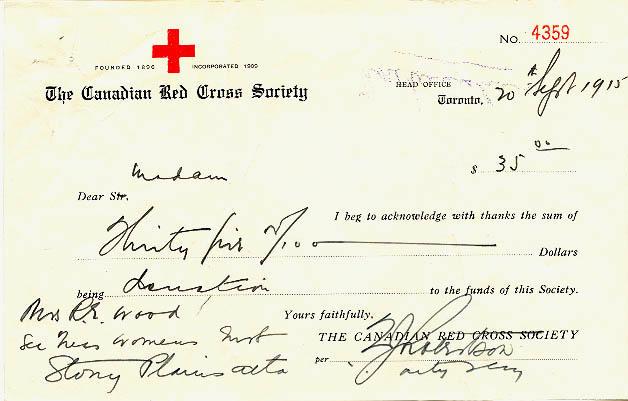 No. 4359
FOUNDED 1896 INCORPORATED 1909
The Canadian Red Cross Society
HEAD OFFICE
Toronto, 20th Sept 1915
$ 35 00
Madam
Dear Sir,
I beg to acknowledge with thanks the sum of
Thirty five 00/100 Dollars
being donation to the funds of this Society.
Mrs R.E. Wood Yours faithfully,
Womens Inst THE CANADIAN RED CROSS SOCIETY
Stony Plains Alta per Robertson